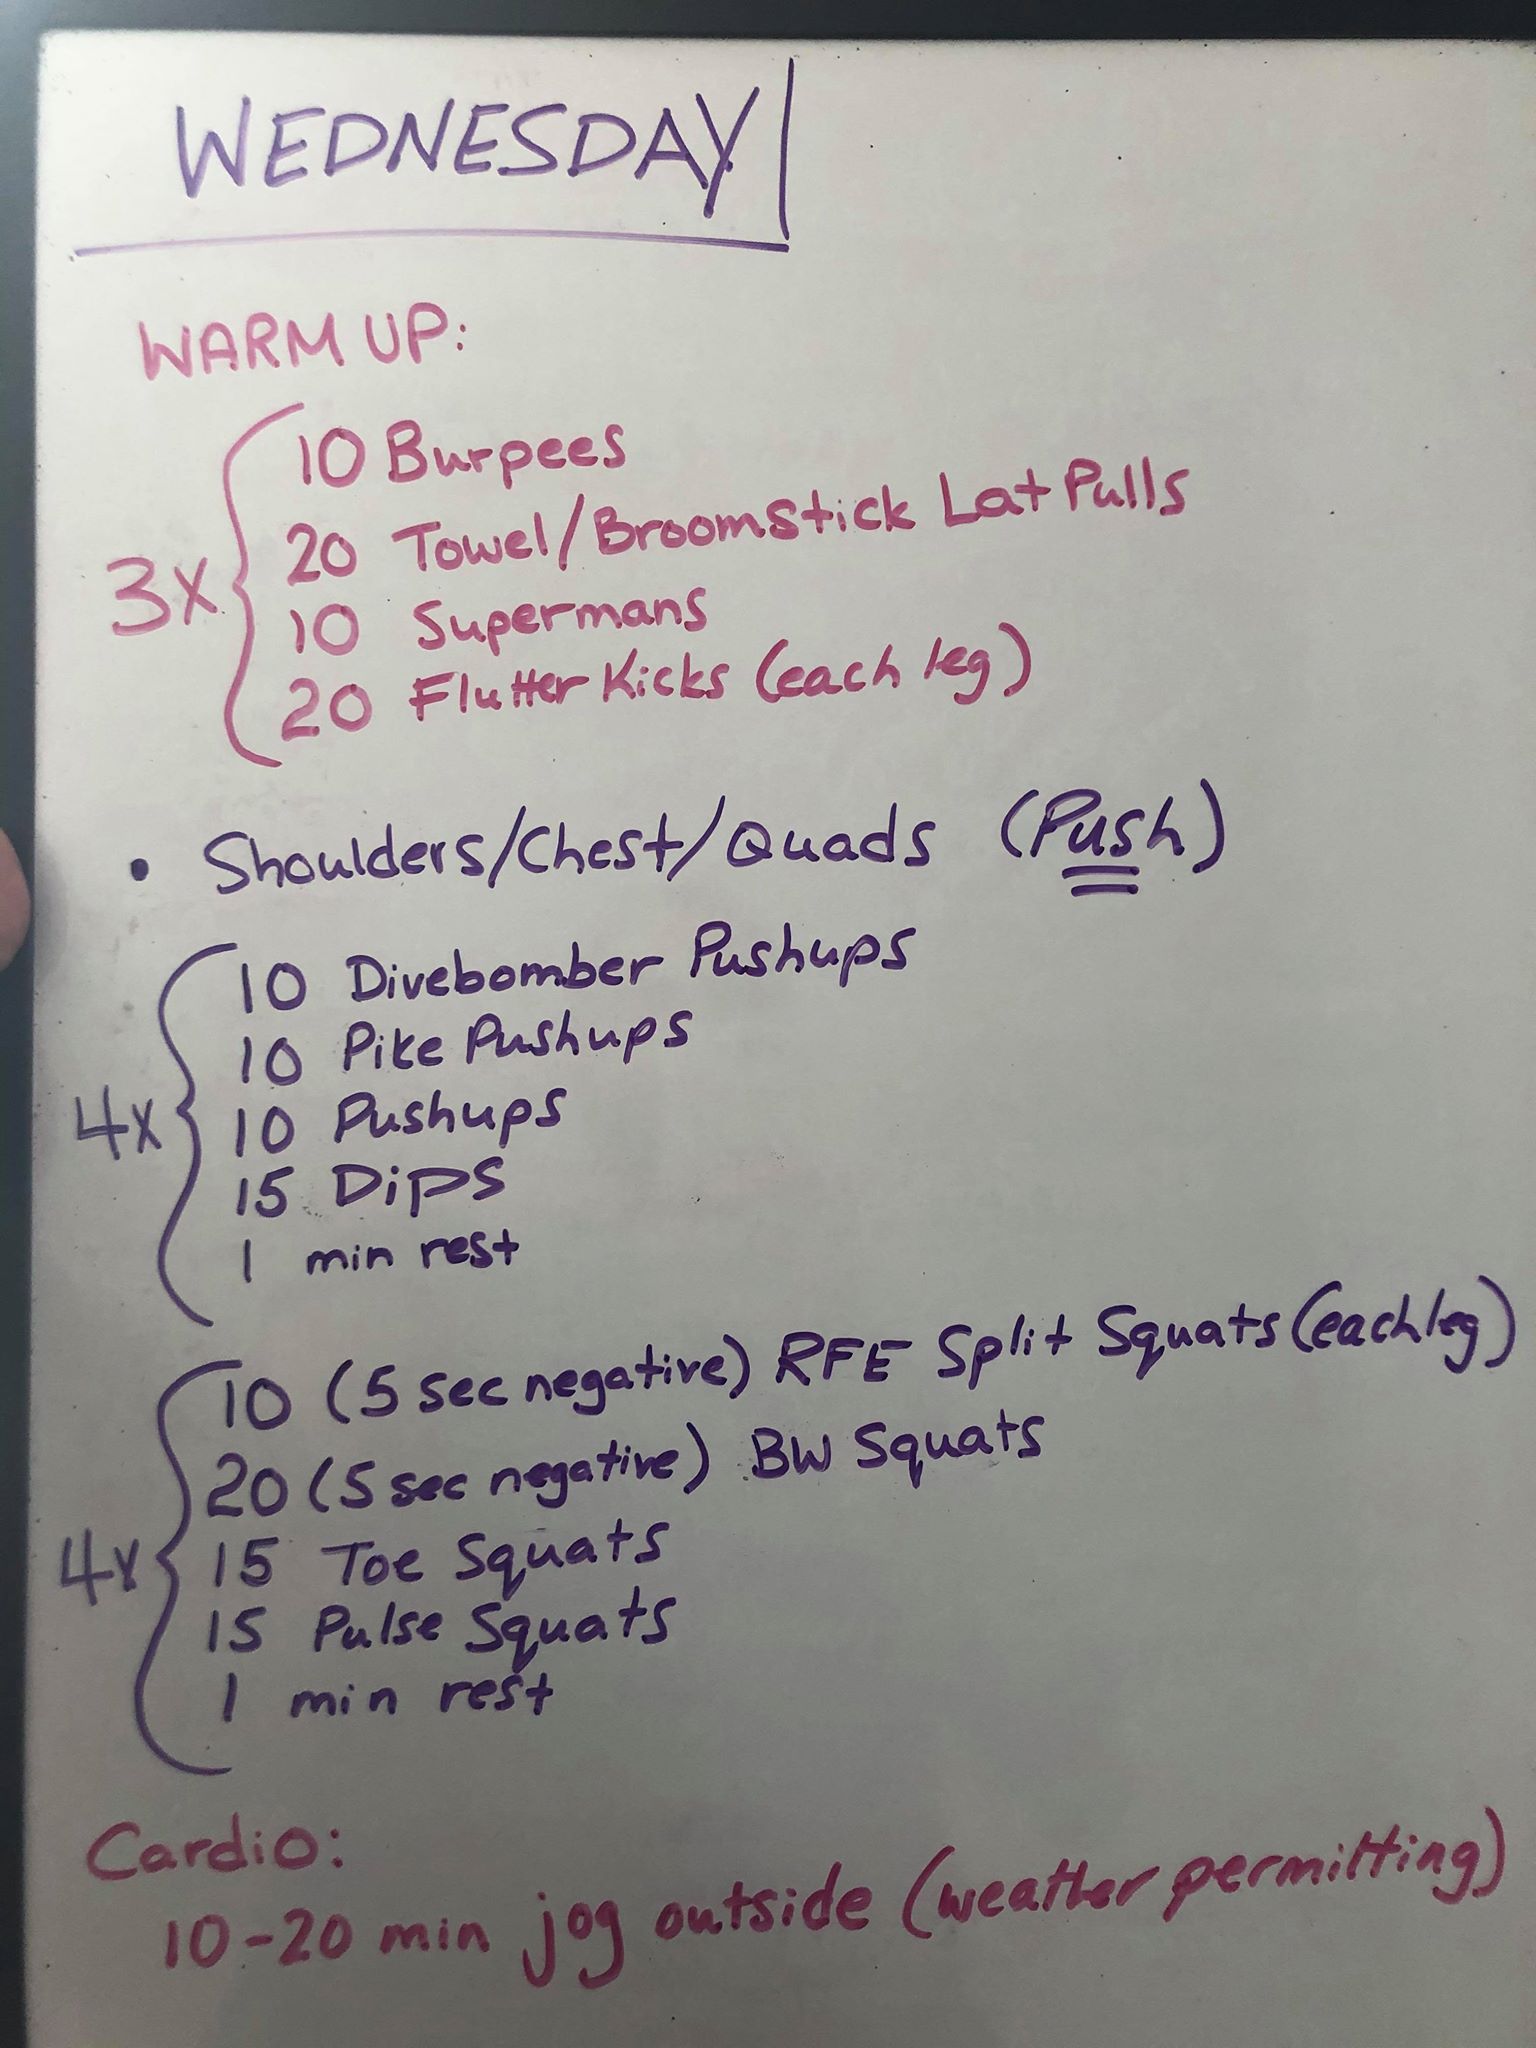 WEDNESDAY
WARM UP:
10 Burpees
20 Towel/Broomstick Lat Pulls
3x
10 Supermans
20 Flutter Kicks (each leg)
• Shoulders/Chest/Quads (Push)
10 Divebomber Pushups
10 Pike Pushups
4x
10 Pushups
15 Dips
1 min rest
10 (5 sec negative) RFE Split Squats (each leg)
20 (5 sec negative) BW Squats
4x
15 Toe Squats
15 Pulse Squats
1 min rest
Cardio:
10-20 min jog outside (weather permitting)